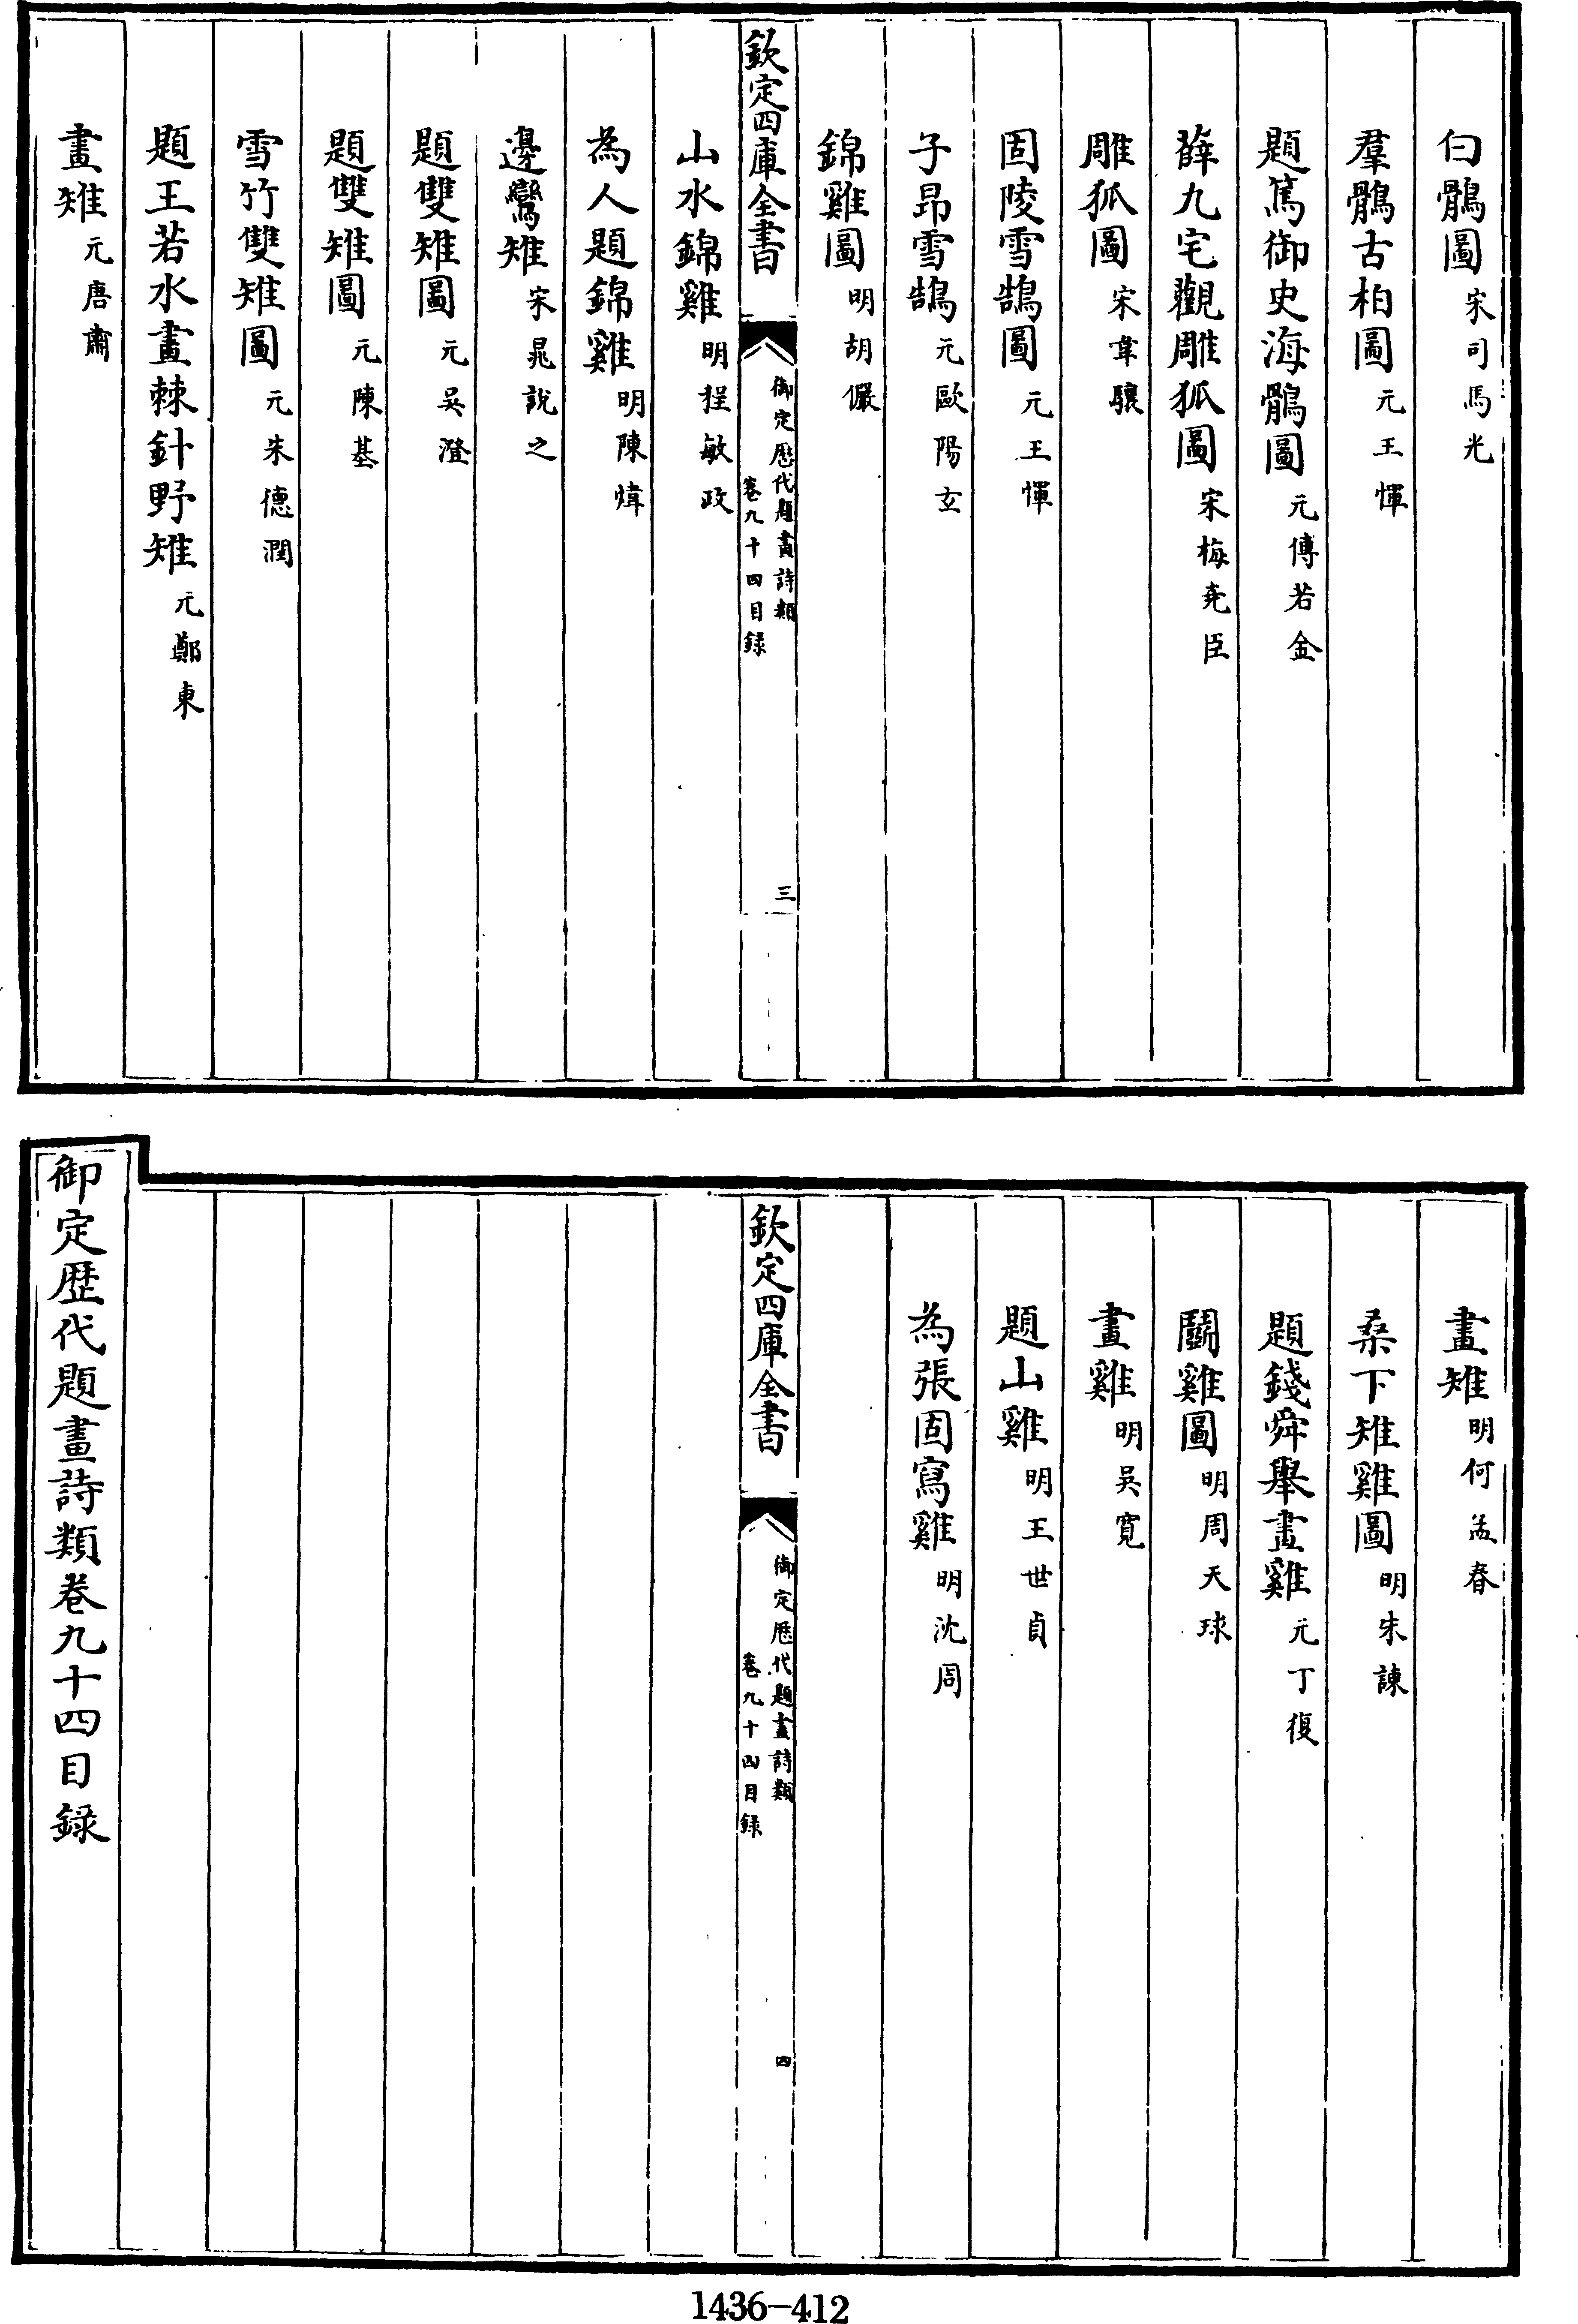 白鶻圖宋司馬光
羣鶻古柏圖元王惲
題篤御史海鶻圖元傅若金
薛九宅觀雕狐圖宋梅堯臣
雕狐圖宋韋驤
固陵雪鵠圖元王惲
子昻雪鵠元歐陽玄
錦雞圖明胡儼
欽定四庫全書
御定歴代題畫詩類
卷九十四目録
三
山水錦雞明程敏政
為人題錦雞明陳煒
邊鸞雉宋晁說之
題雙雉圖元吳澄
題雙雉圖元陳基
雪竹雙雉圖元朱德潤
題王若水畫棘針野雉元鄭東
畫雉元唐肅
畫雉明何孟春
桑下雉雞圖明朱諫
題錢舜舉畫雞元丁復
鬭雞圖明周天球
畫雞明吳寬
題山雞明王世貞
為張固寫雞明沈周
欽定四庫全書
御定歴代題畫詩類
卷九十四目録
四
御定歴代題畫詩類卷九十四目録
1436-412